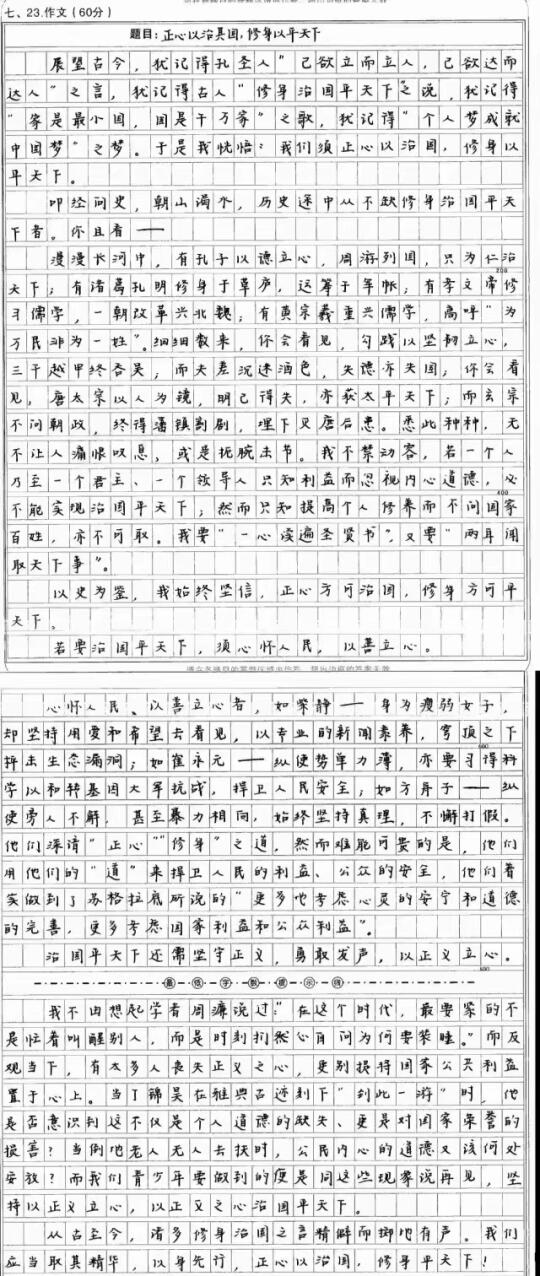 七、23.作文(60分)
题目:正心以治其国,修身以平天下
展望古今,犹记得孔圣人“己欲立而立人,己欲达而
达人”之言,犹记得古人“修身治国平天下”之说,犹记得
“家是最小国,国是千万家”之歌,犹记得“个人梦成就
中国梦”之梦。于是我恍悟:我们须正心以治国,修身以
平天下。
叩经问史,朝山谒水,历史途中从不缺修身治国平天
下者。你且看——
漫漫长河中,有孔子以德立心,周游列国,只为仁治
200
天下;有诸葛孔明修身于草庐,运筹于军帐;有孝文帝修
习儒学,一朝改革兴北魏;有黄宗羲重兴儒学,高呼“为
万民非为一姓”。细细数来,你会看见,勾践以坚韧立心,
三千越甲终吞吴;而夫差沉迷酒色,失德亦失国;你会看
见,唐太宗以人为镜,明己得失,亦获太平天下;而玄宗
不问朝政,终得藩镇割剧,埋下灭唐后患。悉此种种,无
不让人痛恨叹息,或是扼腕击节。我不禁动容,若一个人
乃至一个君主、一个领导人只知利益而忽视内心道德,必
400
不能实现治国平天下;然而只知提高个人修养而不问国家
百姓,亦不可取。我要“一心读遍圣贤书”,又要“两耳闻
取天下事”。
以史为鉴,我始终坚信,正心方可治国,修身方可平
天下。
若要治国平天下,须心怀人民,以善立心。
心怀人民、以善立心者,如柴静——身为瘦弱女子,
却坚持用爱和希望去看见,以专业的新闻素养,穹顶之下
600
抨击生态漏洞;如崔永元——纵使势单力薄,亦要习得科
学以和转基因大军抗战,捍卫人民安全;如方舟子——纵
使旁人不解,甚至暴力相向,始终坚持真理,不懈打假。
他们深谙“正心”“修身”之道,然而难能可贵的是,他们
用他们的“道”来捍卫人民的利益、公众的安全,他们着
实做到了苏格拉底所说的“更多地考虑心灵的安宁和道德
的完善,更多考虑国家利益和公众利益”。
治国平天下还需坚守正义,勇敢发声,以正义立心。
800
最低字数提示线
我不由想起学者周濂说过:“在这个时代,最要紧的不
是忙着叫醒别人,而是时刻扪然心自问为何要装睡。”而反
观当下,有太多人丧失正义之心,更别提将国家公共利益
置于心上。当丁锦昊在雅典古迹刻下“到此一游”时,他
是否意识到这不仅是个人道德的缺失、更是对国家荣誉的
损害?当倒地老人无人去扶时,公民内心的道德又该何处
安放?而我们青少年要做到的便是同这些现象说再见,坚
持以正义立心,以正义之心治国平天下。
从古至今,诸多修身治国之言精僻而掷地有声。我们
应当取其精华,以身先行,正心以治国,修身平天下!